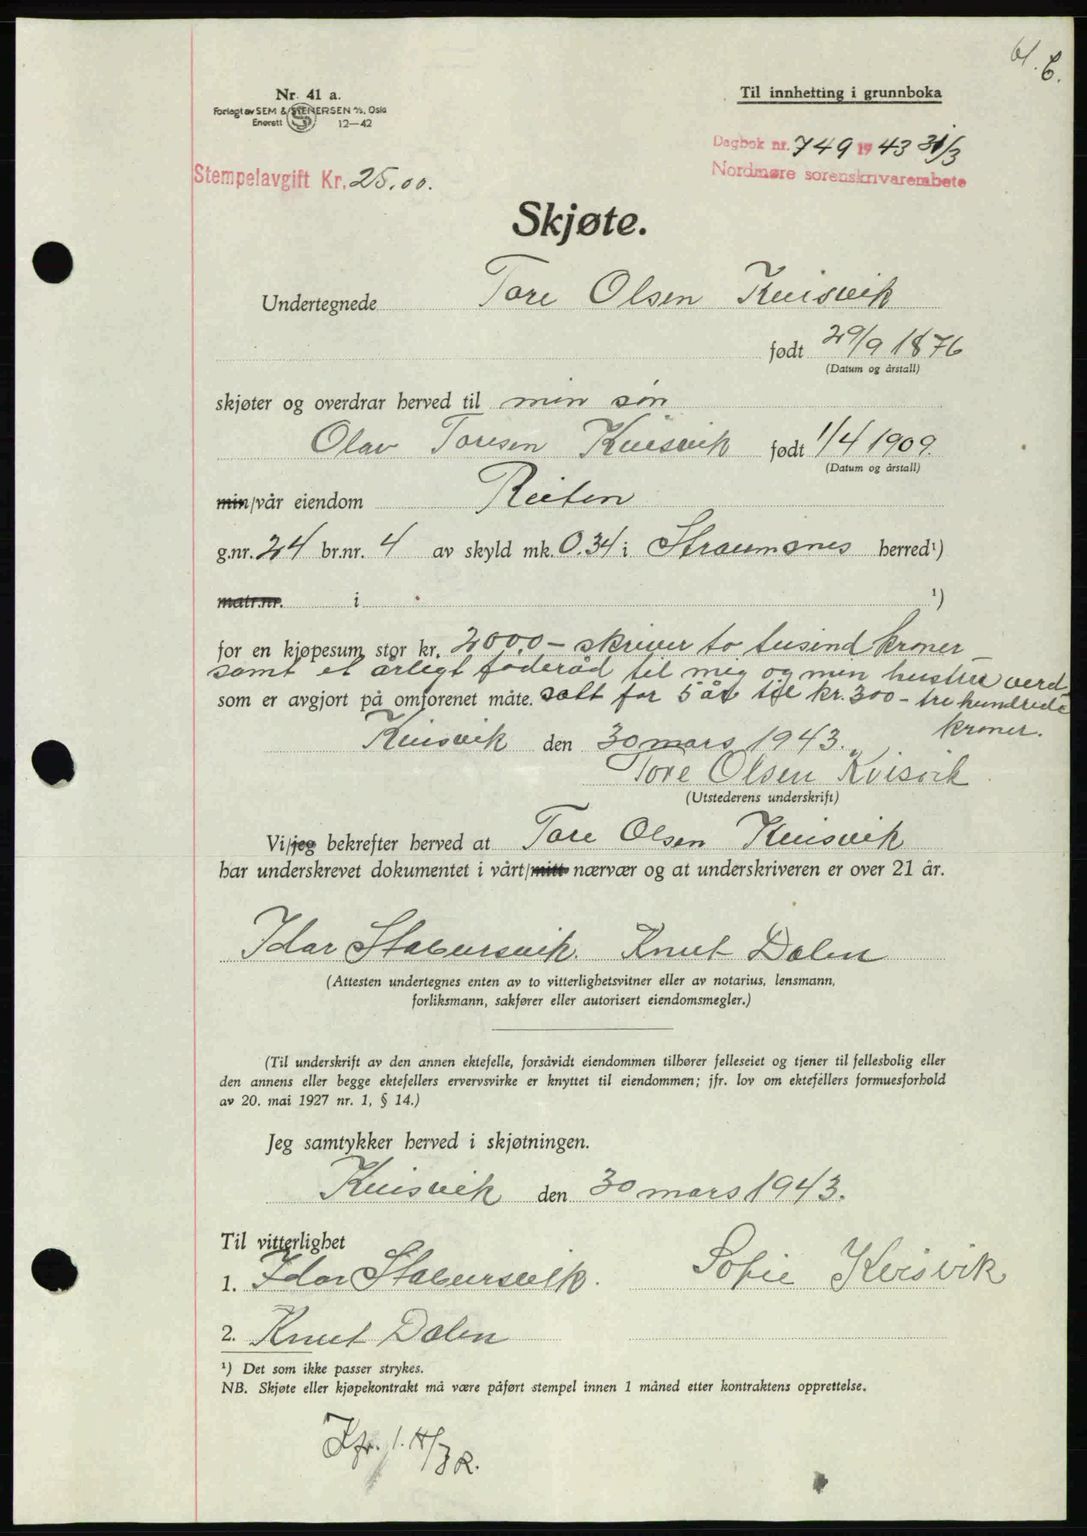 Nr. 41 a.
Forlagt av SEM & STENERSEN A/S, Oslo
Enerett 12—42
Til innhetting i grunnboka
Dagbok nr. 749 1943 31/3
Nordmøre sorenskriverembete
Stempelavgift Kr. 25.00.
Skjøte.
Undertegnede Tore Olsen Kvisvik
født 29/9 1876
(Datum og årstall)
skjøter og overdrar herved til min søn
Olav Toresen Kvisvik født 1/4 1909.
(Datum og årstall)
min/vår eiendom Reiten
g.nr. 24 br.nr. 4 av skyld mk. 0.34 i Straumsnes herred¹)
matr.nr. i ¹)
for en kjøpesum stor kr. 2000,- skriver to tusind kroner
samt et årlegt føderåd til mig og min hustru verd-
som er avgjort på omforenet måte. satt for 5 år til kr. 300 - tre hundrede
kroner.
Kvisvik den 30 mars 1943.
Tore Olsen Kvisvik
(Utstederens underskrift)
Vi/jeg bekrefter herved at Tore Olsen Kvisvik
har underskrevet dokumentet i vårt/mitt nærvær og at underskriveren er over 21 år.
Idar Stabursvik. Knut Dalen
(Attesten undertegnes enten av to vitterlighetsvitner eller av notarius, lensmann,
forliksmann, sakfører eller autorisert eiendomsmegler.)
(Til underskrift av den annen ektefelle, forsåvidt eiendommen tilhører felleseiet og tjener til fellesbolig eller
den annens eller begge ektefellers ervervsvirke er knyttet til eiendommen; jfr. lov om ektefellers formuesforhold
av 20. mai 1927 nr. 1, § 14.)
Jeg samtykker herved i skjøtningen.
Kvisvik den 30 mars 1943.
Til vitterlighet
1. Idar Stabursvik. Sofie Kvisvik
2. Knut Dalen
¹) Det som ikke passer strykes.
NB. Skjøte eller kjøpekontrakt må være påført stempel innen 1 måned etter kontraktens opprettelse.